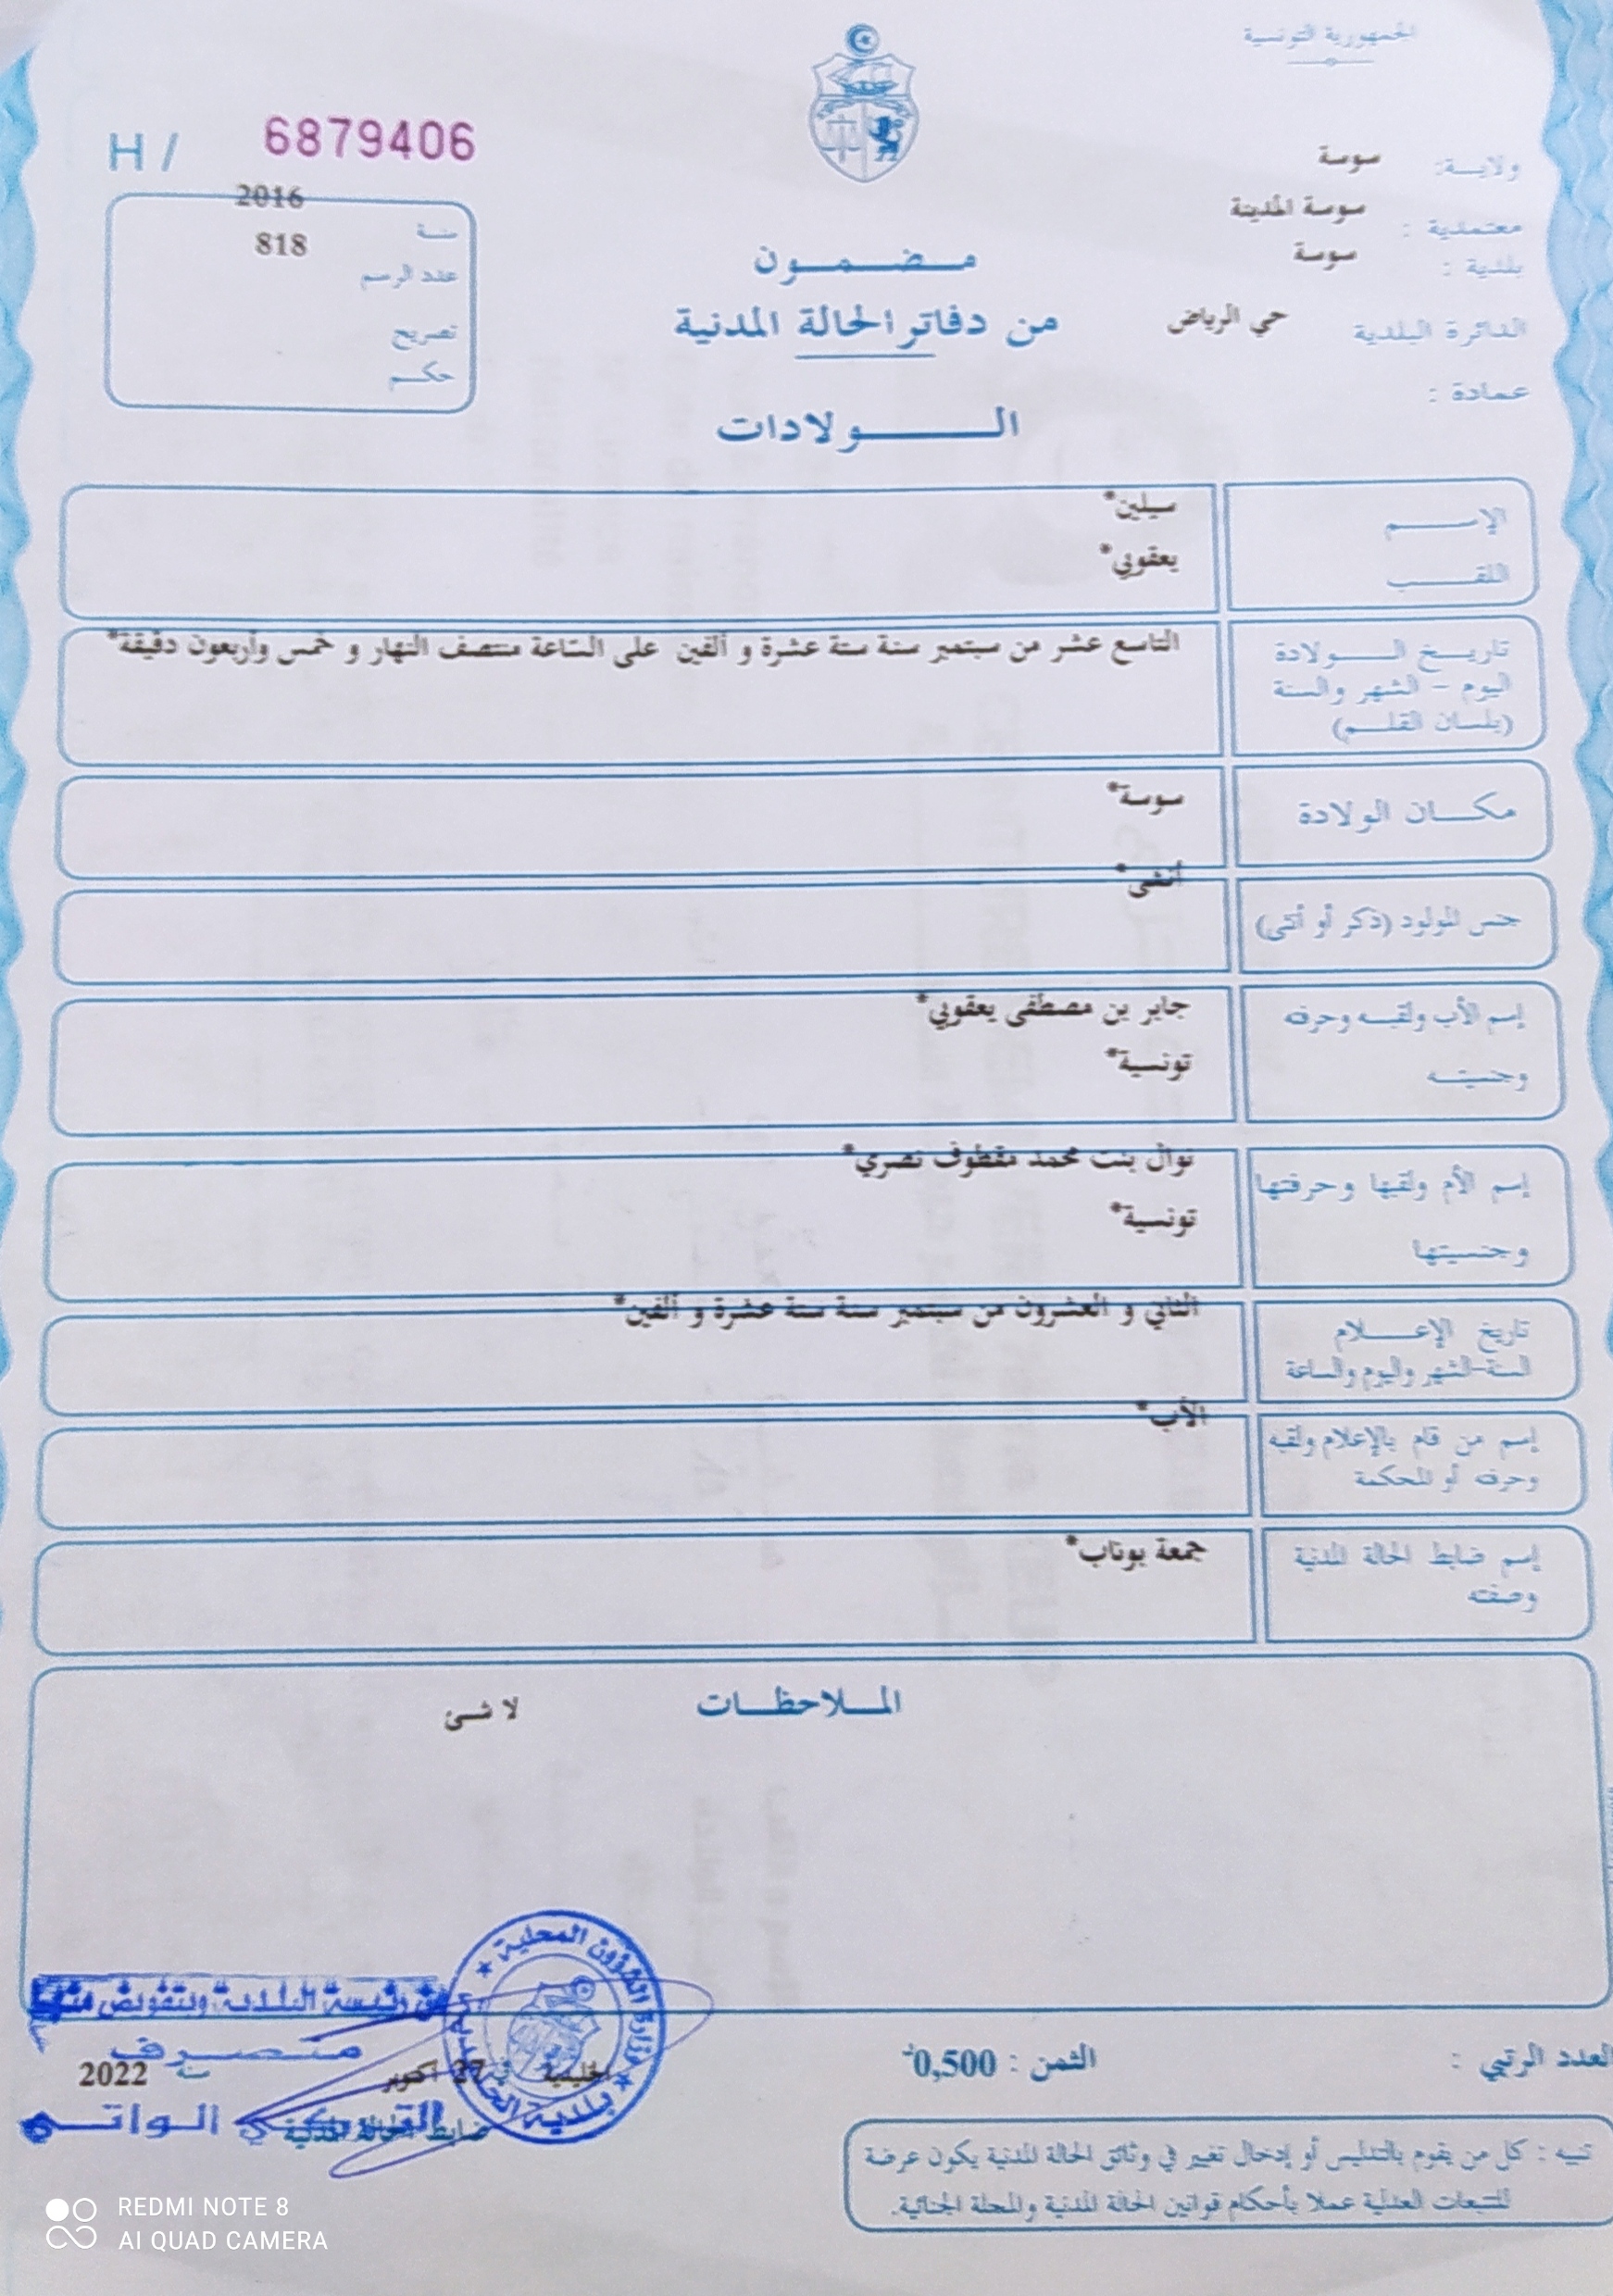 الجمهورية التونسية
ولايـــة: سوسة
معتمدية : سوسة المدينة
بلدية : سوسة
الدائرة البلدية حي الرياض
عمادة :
H / 6879406
سنــة 2016
عدد الرسم 818
تصريح
حكــم
مــضــمــون
من دفاتر الحالة المدنية
الـــــولادات
الإســـــم سيلين*
اللقـــــب يعقوبي*
تاريـــخ الــــولادة التاسع عشر من سبتمبر سنة ستة عشرة و ألفين على الساعة منتصف النهار و خمس وأربعون دقيقة*
اليوم – الشهر والسنة
(بلسان القلـــم)
مكـــان الولادة سوسة*
جنس المولود (ذكر أو أنثى) أنثى*
إسم الأب ولقبــه وحرفته جابر بن مصطفى يعقوبي*
وجنسيتــه تونسية*
إسم الأم ولقبها وحرفتها نوال بنت محمد مقطوف نصري*
وجنسيتها تونسية*
تاريخ الإعـــــلام الثاني و العشرون من سبتمبر سنة ستة عشرة و ألفين*
السنة-الشهر واليوم والساعة
إسم من قام بالإعلام ولقبه الأب*
وحرفته أو المحكمة
إسم ضابط الحالة المدنية جمعة بوناب*
وصفته
المــلاحظــات
لا شئ
وزارة الشؤون المحلية
رئيسة البلدية وبتفويض منها
متصرف
في 27 أكتوبر سنة 2022
ضابط الحالة المدنية
العدد الرتبي :
الثمن : 0,500د
تنبيه : كل من يقوم بالتدليس أو إدخال تغيير في وثائق الحالة المدنية يكون عرضة
للتتبعات العدلية عملا بأحكام قوانين الحالة المدنية والمجلة الجنائية.
REDMI NOTE 8
AI QUAD CAMERA